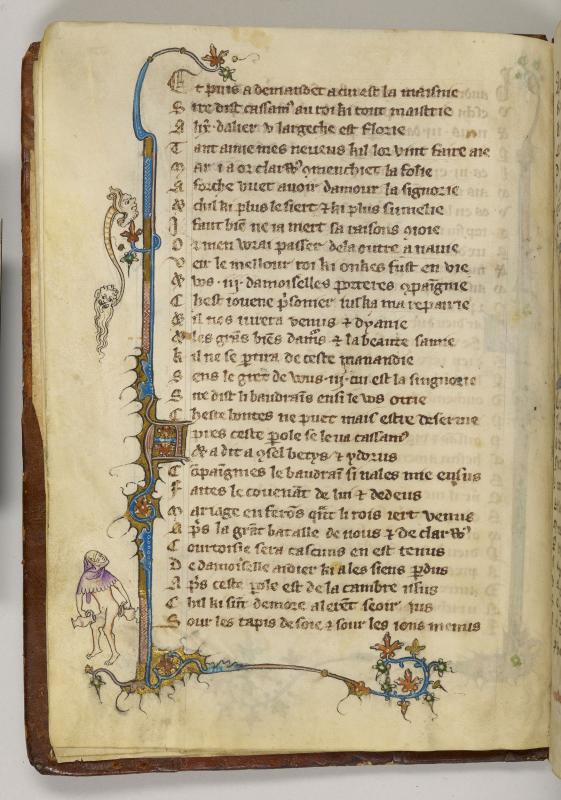 Et puis a demandet a cui est la maisnie
Sire dist cassam9 au roi ki tout maistrie
Alix̄. dalier v largeche est florie
Tant aime mes neueus kil lor vint faire aie
Mar i a or clarw9 9menchiet la folie
A forche vuet auoir damour la signorie
&chil ki plus le siert & ki plus sumelie
I faut biē ne ia mert sa raisons oioie
Or men vrai passer dela outre a nauie
Veir le mellour roi ki onkes fust en vie
&vos .iij. damoiselles porteres 9paignie
Chest iouene p̄sonier iuska ma repairie
&il nos iurera venus & dyanie
&les grās biēs damrs & la beaute saintie
Kil ne se ptira de ceste manandie
Sens le gret de wus .iij. cui est la singnorie
Sire dist li baudrais ensi le wos otrie
Cheste bontes ne puet mais estre deseruie
Apres ceste pole se leua cassam9
&a dit a 9sel betys & ydorus
Cōpaignies le baudraī si nales mie ensus
Faites le couenāt de lui & dedeus
Mariage en ferōs qn̄t li rois iert venus
Ap̄s la grāt bataille de nous & de clarw9
Courtoisie sera cascuns en est tenus
De damoiselle aidier ki a les siens pdus
Ap̄s ceste pole est de la cambre issus
Chil ki sūt demore alerēt seoir ius
Sour les tapis de soie & sour les ions menus